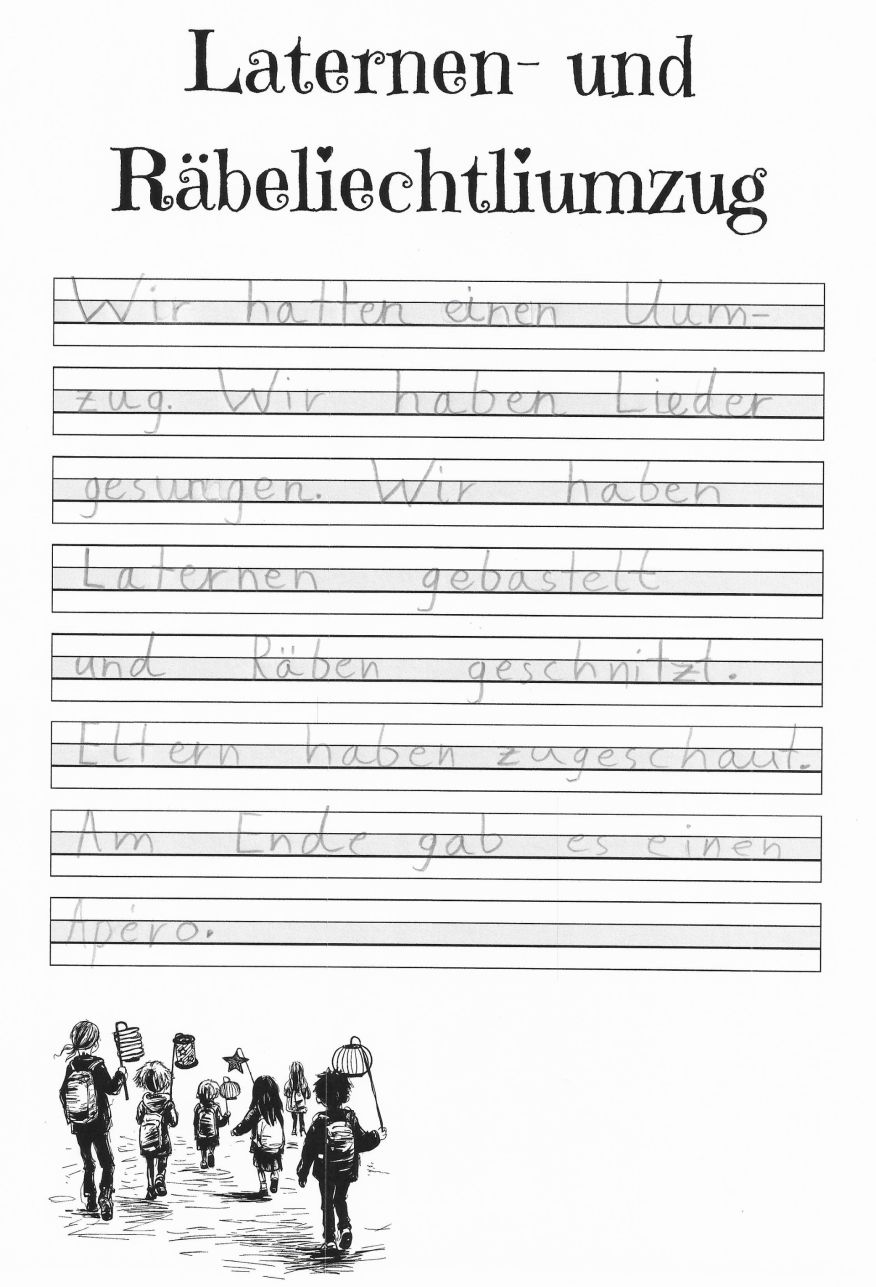 Laternen- und
Räbeliechtliumzug
Wir hatten einen Uum-
zug. Wir haben Lieder
gesungen. Wir haben
Laternen gebastelt
und Räben geschnitzt.
Eltern haben zugeschaut.
Am Ende gab es einen
Apéro.